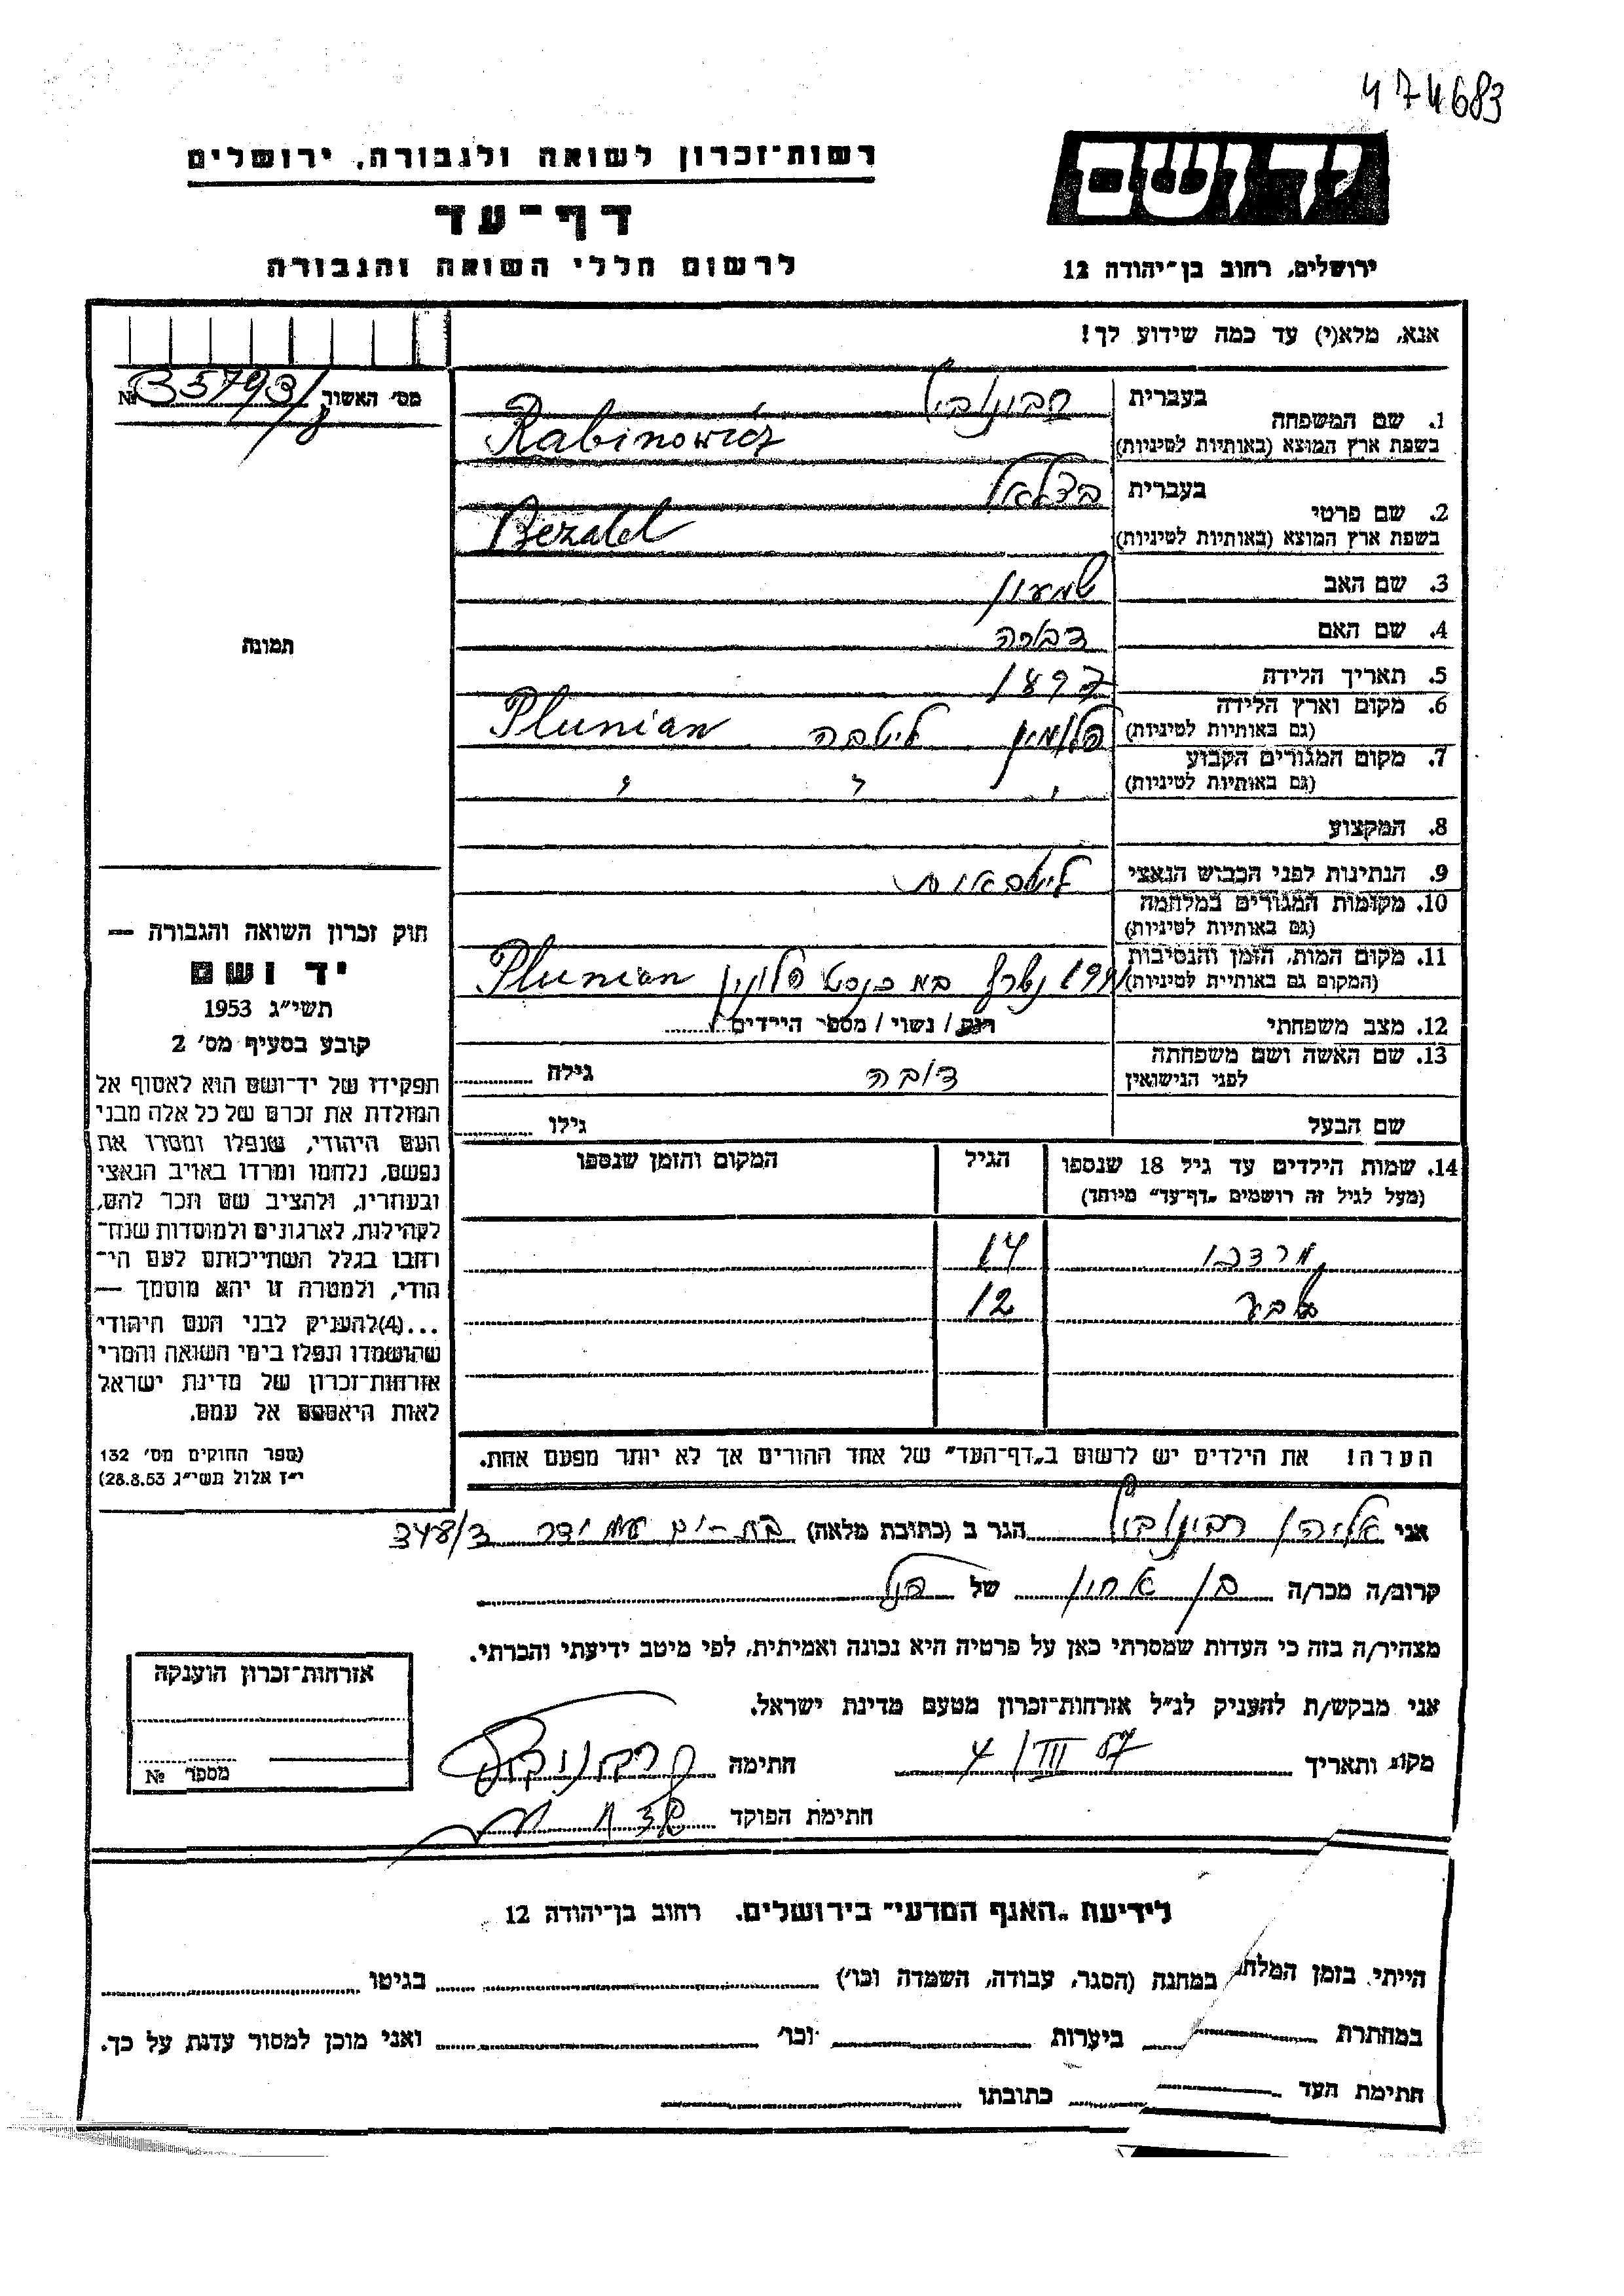 474683
רשות־זכרון לשואה ולגבורה, ירושלים
יד ושם
דף־עד
לרשום חללי השואה והגבורה
ירושלים, רחוב בן־יהודה 12
אנא, מלא(י) עד כמה שידוע לך!
מס׳ האשור № 35793/
1. שם המשפחה
בעברית רבינוביץ
בשפת ארץ המוצא (באותיות לטיניות) Rabinowicz
2. שם פרטי
בעברית בצלאל
בשפת ארץ המוצא (באותיות לטיניות) Bezalel
3. שם האב שמעון
4. שם האם דבורה
5. תאריך הלידה 1897
6. מקום וארץ הלידה
(גם באותיות לטיניות) ליטבה Plunian
7. מקום המגורים הקבוע
(גם באותיות לטיניות) " " "
8. המקצוע
9. הנתינות לפני הכבוש הנאצי ליטבאית
10. מקומות המגורים במלחמה
(גם באותיות לטיניות)
11. מקום המות, הזמן והנסיבות
(המקום גם באותיית לטיניות) 1941 נשרף Plunian
12. מצב משפחתי רוק / נשוי / מספר הילדים
13. שם האשה ושם משפחתה
לפני הנישואין דובה גילה
שם הבעל גילו
14. שמות הילדים עד גיל 18 שנספו הגיל המקום והזמן שנספו
(מעל לגיל זה רושמים „דף־עד״ מיוחד)
מרדכי 14
12
הערה! את הילדים יש לרשום ב„דף־העד״ של אחד ההורים אך לא יותר מפעם אחת.
תמונה
חוק זכרון השואה והגבורה —
יד ושם
תשי״ג 1953
קובע בסעיף מס׳ 2
תפקידו של יד־ושם הוא לאסוף אל
המולדת את זכרם של כל אלה מבני
העם היהודי, שנפלו ומסרו את
נפשם, נלחמו ומרדו באויב הנאצי
ובעוזריו, ולהציב שם וזכר להם,
לקהילות, לארגונים ולמוסדות שנח־
רחבו בגלל השתייכותם לעם הי־
הודי, ולמטרה זו יהא מוסמך —
...(4)להעניק לבני העם היהודי
שהושמדו ונפלו בימי השואה והמרי
אזרחות־זכרון של מדינת ישראל
לאות היאספם אל עמם.
(ספר החוקים מס׳ 132
י״ז אלול תשי״ג 28.8.53)
אני אליהו רבינוביץ הגר ב (כתובת מלאה) בת-ים עמידר 348/3
קרוב/ה מכר/ה בן אחיו של הנ״ל
מצהיר/ה בזה כי העדות שמסרתי כאן על פרטיה היא נכונה ואמיתית, לפי מיטב ידיעתי והכרתי.
אני מבקש/ת להעניק לנ״ל אזרחות־זכרון מטעם מדינת ישראל.
מקום ותאריך 4/III 57 חתימה
חתימת הפוקד
אזרחות־זכרון הוענקה
מספר №
לידיעת „האגף המדעי״ בירושלים. רחוב בן־יהודה 12
הייתי בזמן המלח במחנה (הסגר, עבודה, השמדה וכו׳) בגיטו
במחתרת ביערות וכו׳ ואני מוכן למסור עדות על כך.
חתימת העד כתובתו